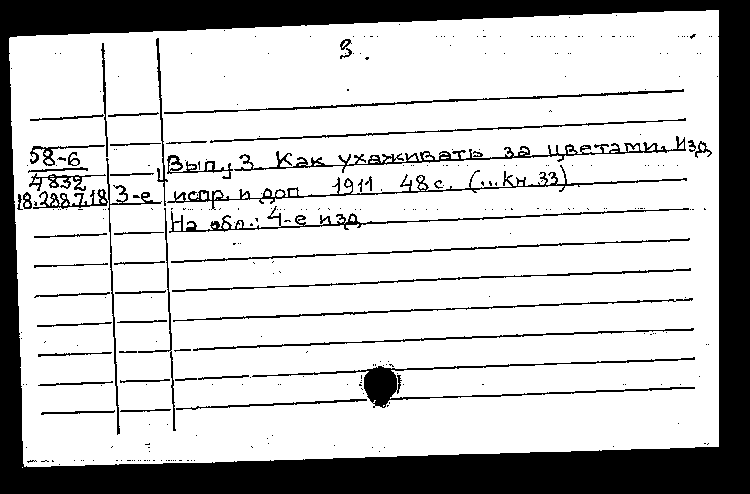 3.
58-6
Вып. 3 Как ухаживать за цветами. Изд
4832
18.288.7.18 3-е испр. и доп 1911. 48 с. (...Кн. 33).
На обл.: 4-е изд